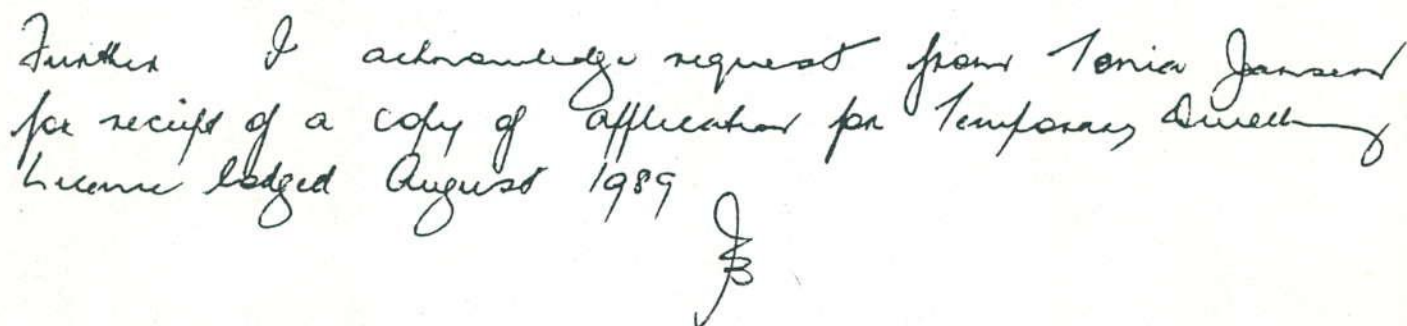 Further I acknowledge request from Tonia Jansen
for receipt of a copy of application for Temporary Dwelling
License lodged August 1989